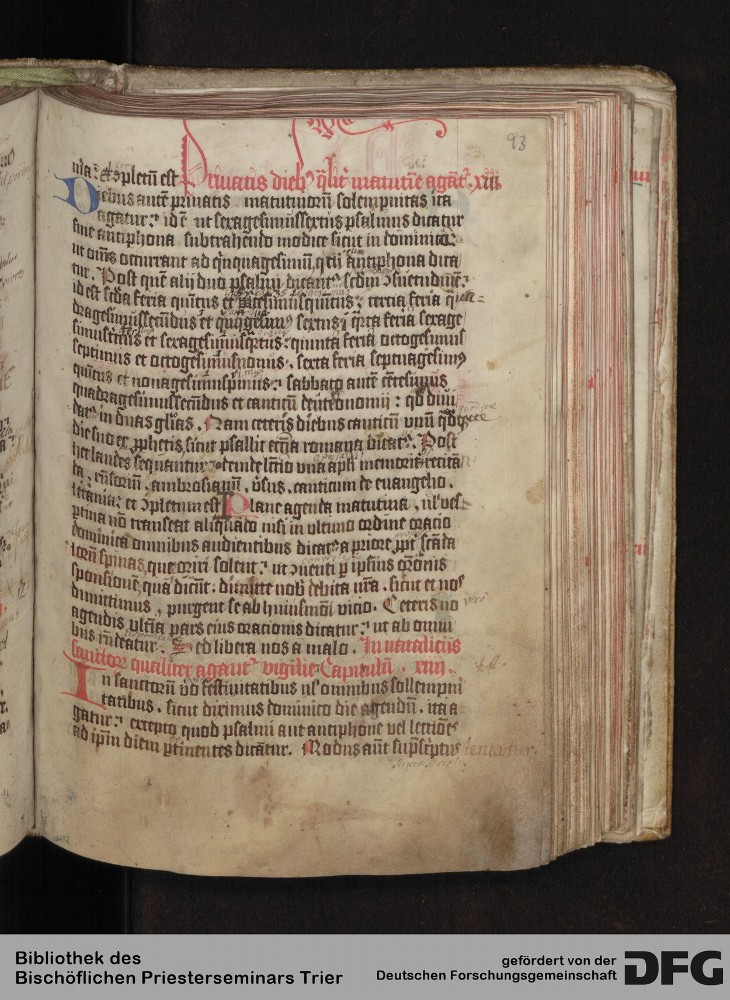 93
nia et completum est Privatis dieb' qualiter matutine agant'. xiii.
Diebus autem privatis matutinorum solempnitas ita
agatur: id est ut sexagesimussextus psalmus dicatur
sine antiphona subtrahendo modice sicut in dominico:
ut omnes occurrant ad quinquagesimum, qui cum antiphona dica
tur. Post quem alij duo psalmi dicantur secundum consuetudinem:
id est secunda feria quintus et tricesimusquintus: tercia feria qua=
dragesimussecundus et quinquagesimus sextus: quarta feria sexage
simustercius et sexagesimusquartus: quinta feria octogesimus
septimus et octogesimusnonus. sexta feria septuagesimus
quintus et nonagesimusprimus: sabbato autem centesimus
quadragesimussecundus et canticum deuteronomii: quod divi
datur in duas glorias. Nam ceteris diebus canticum unum quodque
die suo ex prophetis sicut psallit ecclesia romana dicatur. Post
hec laudes sequantur: deinde lectio una apostoli memoriter recitan
da, responsorium. ambrosianum. versus. canticum de euangelio.
letania: et completum est Plane agenda matutina, vel ves
pertina non transeat aliquando nisi in ultimo ordine oracio
dominica omnibus audientibus dicatur a priore propter scanda
lorum spinas, que oriri solent: ut conuenti per ipsius orationis
sponsionem, qua dicunt: dimitte nobis debita nostra. sicut et nos
dimittimus, purgent se ab huiusmodi vicio. Ceteris vero
agendis ultima pars eius oracionis dicatur: ut ab omni
bus respondeatur. Sed libera nos a malo. In nataliciis
sanctorum qualiter agantur vigilie Capitulum. xiiii.
In sanctorum vero festivitatibus vel omnibus sollempni
tatibus. sicut diximus dominico die agendum. ita a
gatur: excepto quod psalmi aut antiphone vel lectiones
ad ipsum diem pertinentes dicantur. Modus autem suprascriptus teneatur.
Bibliothek des
Bischöflichen Priesterseminars Trier
gefördert von der
Deutschen Forschungsgemeinschaft
DFG